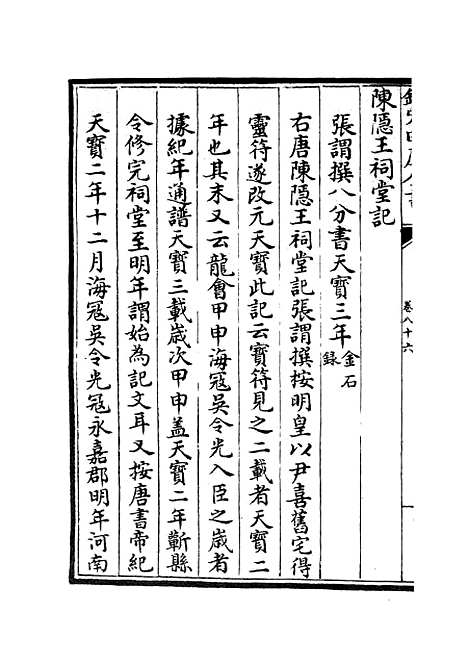 陳隱王祠堂記
張謂撰八分書天寶三年金石録
右唐陳隱王祠堂記張謂撰按明皇以尹喜舊宅得
靈符遂改元天寶此記云寶符見之二載者天寶二
年也其末又云龍會甲申海冦吳令光入臣之歲者
據紀年通譜天寶三載歲次甲申盖天寶二年蘄縣
令修完祠堂至明年謂始為記文耳又按唐書帝紀
天寶二年十二月海冦吳令光冦永嘉郡明年河南
卷八十六